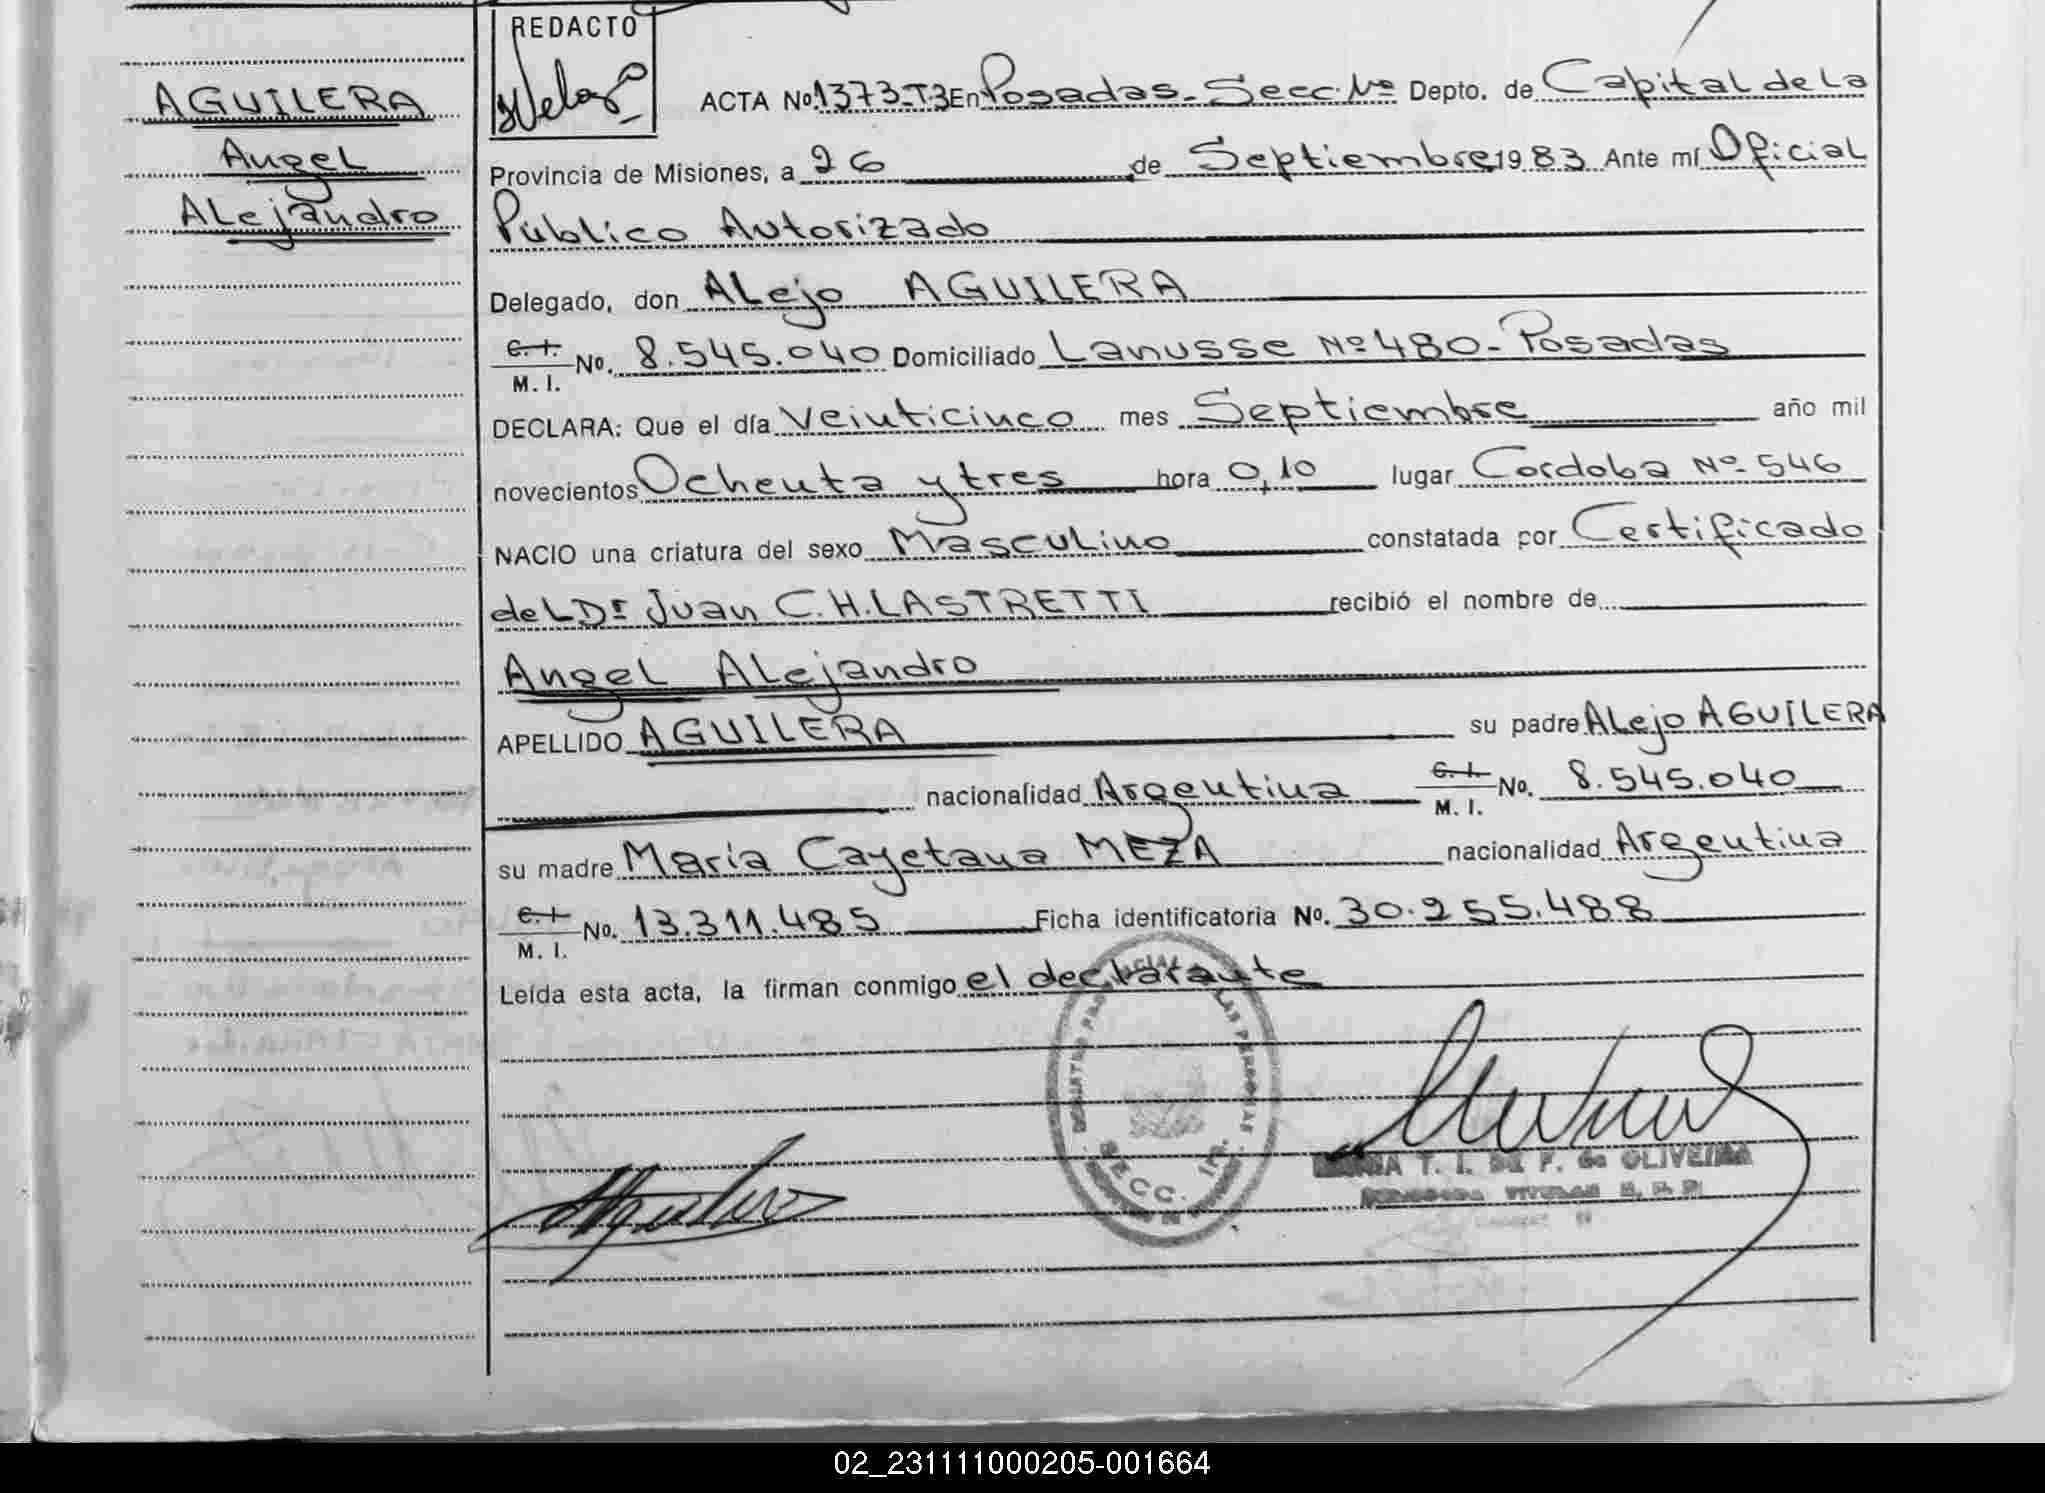 AGUILERA
Angel
ALejandro
REDACTO
ACTA No. 1373-T3 En Posadas - Secc. 1ra Depto. de Capital de La
Provincia de Misiones, a 26 de Septiembre 1983 Ante mí Oficial
Público Autorizado
Delegado, don ALejo AGUILERA
C. I.
M. I. No. 8.545.040 Domiciliado Lanusse Nº 480 - Posadas
DECLARA: Que el día Veinticinco mes Septiembre año mil
novecientos Ochenta y tres hora 0,10 lugar Cordoba Nº 546
NACIO una criatura del sexo Masculino constatada por Certificado
deL Dr Juan C.H. LASTRETTI recibió el nombre de
Angel ALejandro
APELLIDO AGUILERA su padre ALejo AGUILERA
nacionalidad Argentina C. I. M. I. No. 8.545.040
su madre María Cayetana MEZA nacionalidad Argentina
C. I.
M. I. No. 13.311.485 Ficha identificatoria No. 30.255.488
Leída esta acta, la firman conmigo el declarante
LAS PERSONAS
SECC. 1ra.
T. I. DE F. de OLIVEIRA
02_231111000205-001664